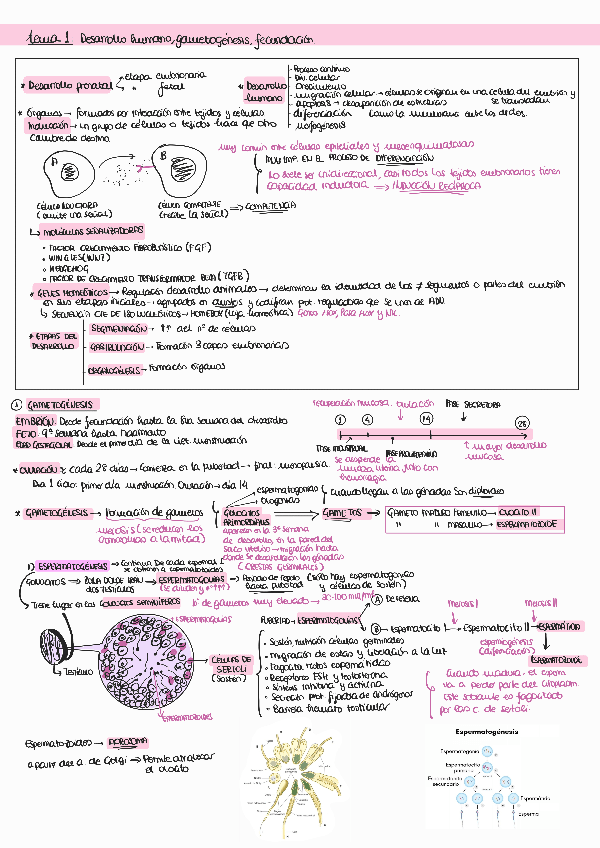 tema 1 Desarrollo humano, gametogénesis, fecundación.
* Desarrollo prenatal etapa embrionaria
" fetal
* Desarrollo humano
- Proceso continuo
- Div. celular
- Crecimiento
- migración celular → células se originan en una célula del embrión y se trasladan
- apoptosis → desaparición de estructuras
- diferenciación como la membrana entre los dedos.
- morfogénesis
* Órganos → formados por interacción entre tejidos y células
Inducción → Un grupo de células o tejidos hace que otro
cambie de destino
Muy común entre células epiteliales y mesenquimatosas
MUY IMP. EN EL PROCESO DE DIFERENCIACIÓN
No suele ser unidireccional, casi todos los tejidos embrionarios tienen
capacidad inductora ⇒ INDUCCIÓN RECÍPROCA
A
B
CÉLULA INDUCTORA
(emite una señal)
CÉLULA COMPETENTE
(recibe la señal)
⇒ COMPETENCIA
↳ MOLÉCULAS SEÑALIZADORAS
• FACTOR CRECIMIENTO FIBROBLÁSTICO (FGF)
• WINGLES (WNT)
• HEDGEHOG
• FACTOR DE CRECIMIENTO TRANSFORMADOR BETA (TGFB)
* GENES HOMEÓTICOS → Regulación desarrollo animales → determinan la identidad de los ≠ segmentos o partes del embrión
en sus etapas iniciales → agrupados en clusters y codifican prot. reguladoras que se unen al ADN
↳ SECUENCIA CTE DE 180 NUCLEÓTIDOS → HOMEBOX (caja homeótica) Genes Hox, Para Hox y NK.
* ETAPAS DEL DESARROLLO
SEGMENTACIÓN → ↑↑ del nº de células
GASTRULACIÓN → Formación 3 capas embrionarias
ORGANOGÉNESIS → Formación órganos
1 GAMETOGÉNESIS
EMBRIÓN: Desde fecundación hasta la 8va semana del desarrollo
FETO: 9ª semana hasta nacimiento
EDAD GESTACIONAL: Desde el primer día de la últ. menstruación
recuperación mucosa.
ovulación
FASE SECRETORA
1
4
14
28
FASE MENSTRUAL
se desprende la
mucosa uterina junto con
hemorragia
FASE PROLIFERATIVA
↑ mayor desarrollo
mucosa
* OVULACIÓN: cada 28 días → comienza en la pubertad → final: menopausia
Día 1 ciclo: primer día menstruación. Ovulación → día 14
* GAMETOGÉNESIS → Formación de gametos
meiosis (se reducen los
cromosomas a la mitad)
espermatogonias
ovogonias
Cuando llegan a las gónadas son diploides
GONOCITOS PRIMORDIALES
aparecen en la 3ª semana
de desarrollo, en la pared del
saco vitelino → migración hasta
donde se desarrollarán las gónadas
(CRESTAS GERMINALES)
GAMETOS
GAMETO MADURO FEMENINO → OVOCITO II
" " MASCULINO → ESPERMATOZOIDE
1) ESPERMATOGÉNESIS → Continua. De cada espermat. I
se obtienen 4 espermatozoides
GONOCITOS → ESPERMATOGONIAS
(se dividen y nº ↑↑↑)
→ Periodo de reposo (solo hay espermatogonias
hasta pubertad y células de Sertoli)
↳ Tiene lugar en los CONDUCTOS SEMINÍFEROS
nº de gametos muy elevado →
ESPERMATOGONIAS
Testículo
ESPERMATOZOIDES
PUBERTAD → ESPERMATOGONIAS
A → De reserva
B → Espermatocito I → Espermatocito II → ESPERMÁTIDA
Meiosis I
Meiosis II
espermiogénesis
(diferenciación)
ESPERMATOZOIDE
CÉLULAS DE SERTOLI
(Sostén)
• Sostén nutrición células germinales
• migración de estas y liberación a la luz
• Fagocita restos espermátidas
• Receptores FSH y testosterona
• Síntesis inhibina y activina
• Secreción prot. fijadora de andrógenos
• Barrera hemato testicular
Cuando madura, el esperm
va a perder parte del citoplasm.
Este sobrante es fagocitado
por las c. de sertoli.
Espermatozoides → ACROSOMA
a partir del a. de Golgi → Permite atravesar
el ovocito
Espermatogénesis
Espermatogonia
Espermatocito
primario
Espermatocito
secundario
Espermátida
Esperma